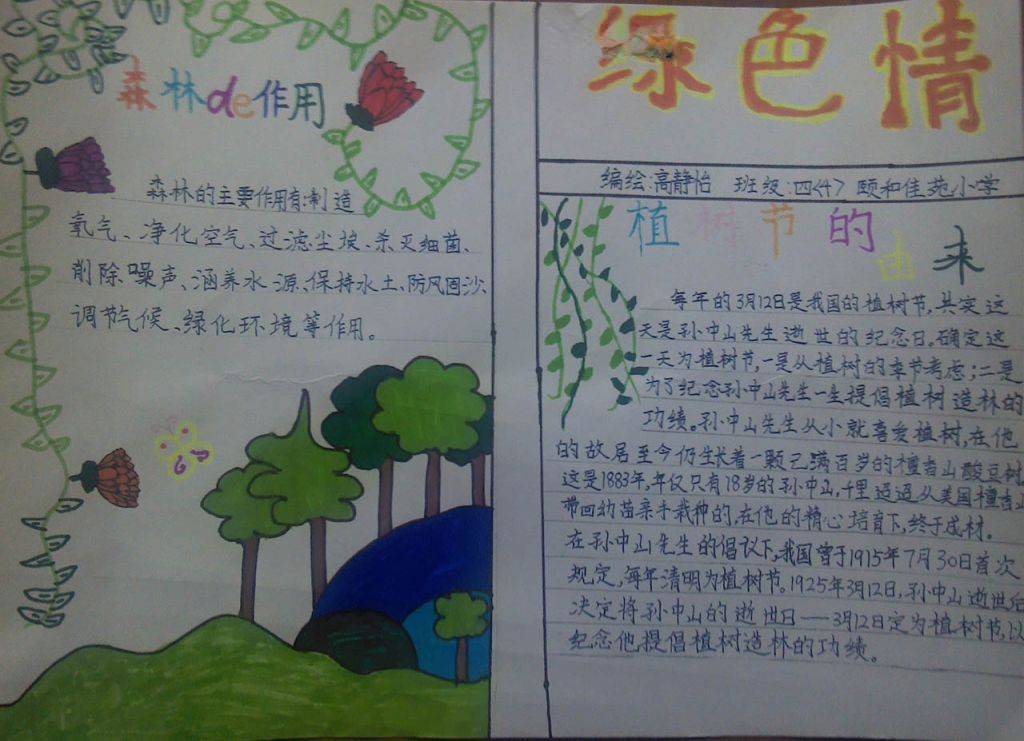 森林de作用
森林的主要作用有:制造
氧气、净化空气、过滤尘埃、杀灭细菌、
削除噪声、涵养水源、保持水土、防风固沙、
调节气候、绿化环境等作用。
绿色情
编绘:高静怡 班级:四<4> 颐和佳苑小学
植树节的由来
每年的3月12日是我国的植树节,其实这
天是孙中山先生逝世的纪念日。确定这
一天为植树节,一是从植树的季节考虑;二是
为了纪念孙中山先生一生提倡植树造林的
功绩。孙中山先生从小就喜爱植树,在他
的故居至今仍生长着一颗已满百岁的檀香山酸豆树
这是1883年,年仅只有18岁的孙中山,千里迢迢从美国檀香山
带回幼苗亲手栽种的,在他的精心培育下,终于成材。
在孙中山先生的倡议下,我国曾于1915年7月30日首次
规定,每年清明为植树节。1925年3月12日,孙中山逝世后
决定将孙中山的逝世日——3月12日定为植树节,以
纪念他提倡植树造林的功绩。